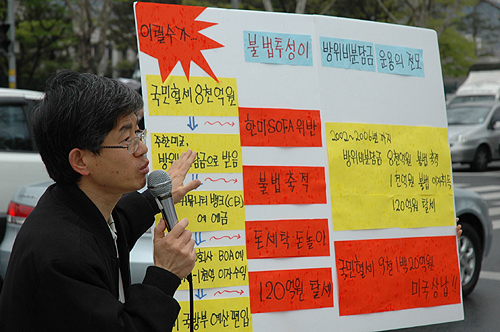 이럴수가...
불법투성이
방위비분담금 운용의 전모
국민혈세 8천억원
주한미군,
방위 담금으로 받음
뮤니티 뱅크(CB)
에 예금
회사 BOA에
1천억 이자수익
국방부 예산 편입
한미SOFA 위반
불법 축적
돈세탁·돈놀이
120억원 탈세
2002~2006년 까지
방위비분담금 8천억원 불법 축적
1천억원 불법 이자취득
120억원 탈세
국민혈세 9천 1백20억원
미국상납!!